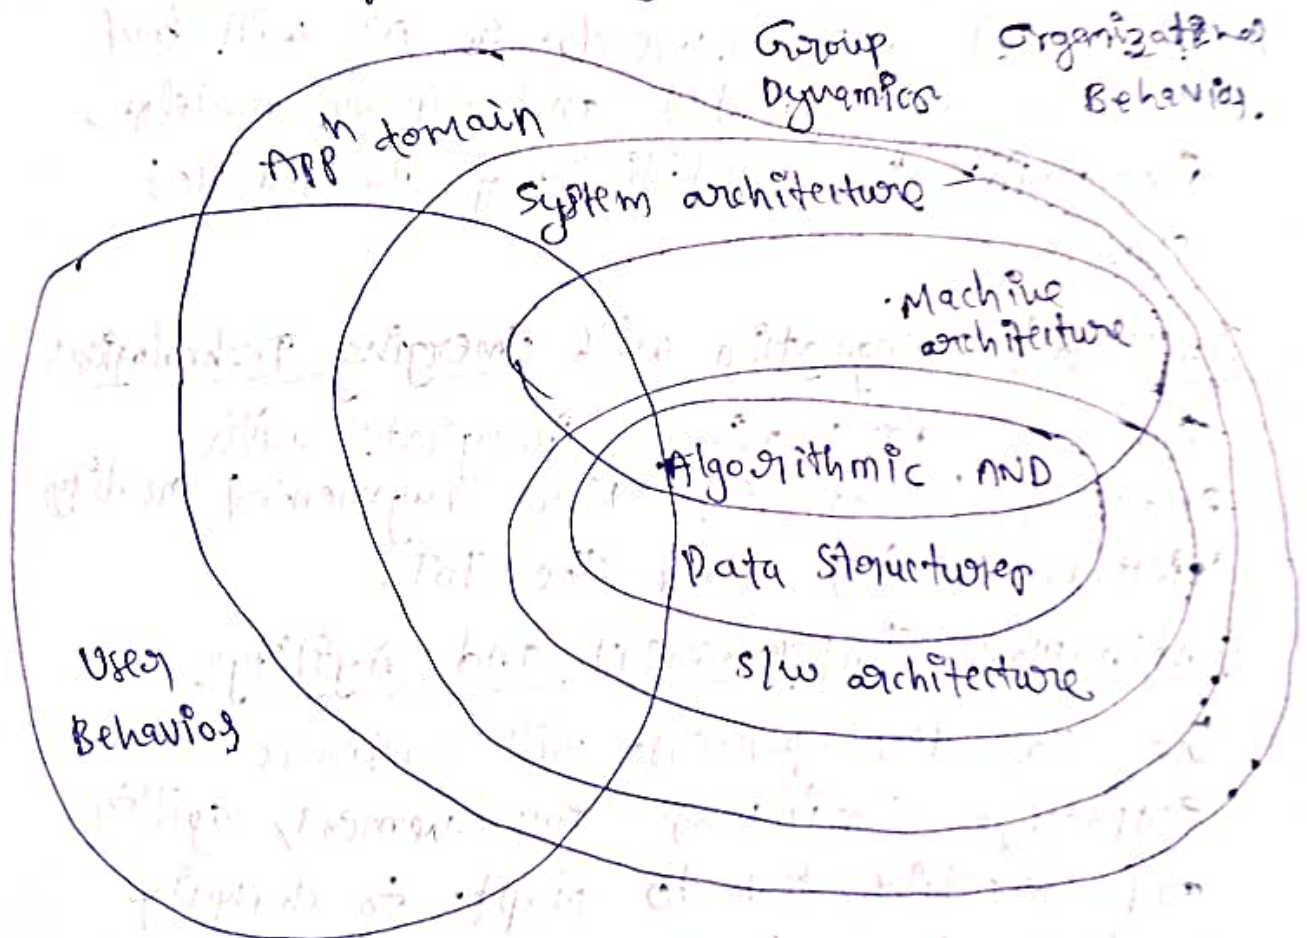 Group
Dynamics
Organizational
Behavior.
Appⁿ domain
System architecture
Machine
architecture
Algorithmic AND
Data Structures
S/W architecture
User
Behavior